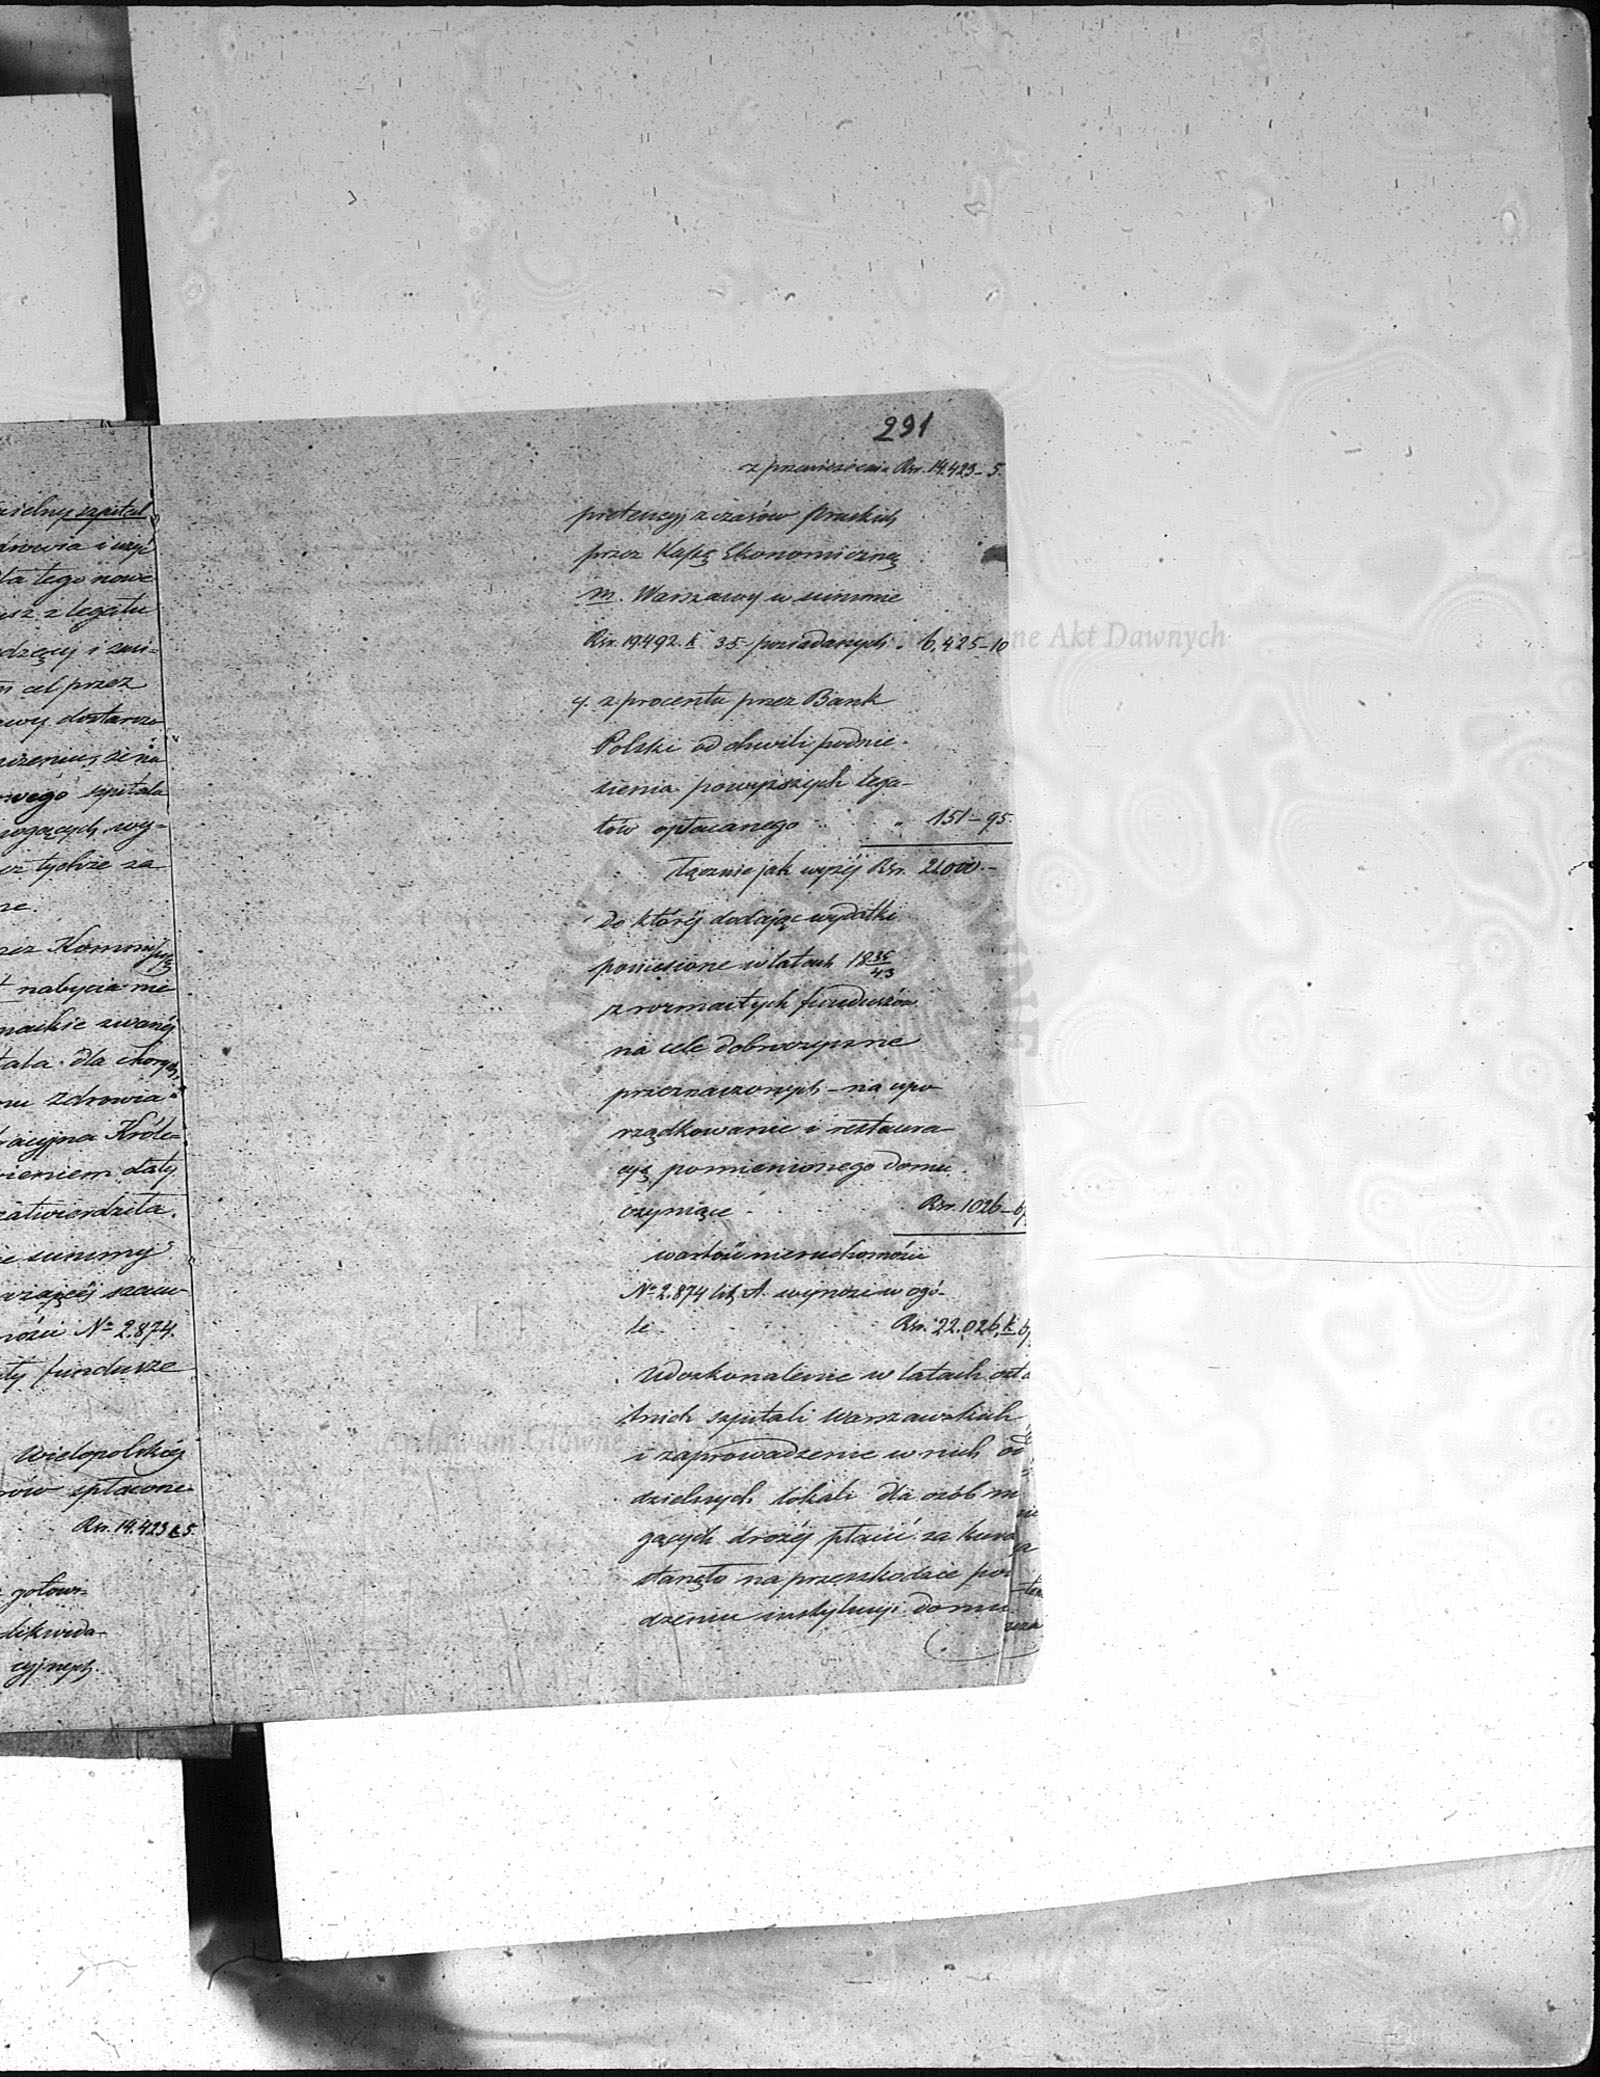 zielny szpital
drowia i użyć
dla tego nowe
usz z legatu
dzącej i zwi-
n cel przez
awy dostarczo
żeniu, że na
owego szpitala
mogących wy-
ez tychże za
rze.
zez Kommissyą
nabycia nie
zwanej
tala dla chorych
mu Zdrowia"
racyjna Króle-
wieniem daty
zatwierdziła.
ie summy
ważającej szacu-
mości Nº 2.874.
fundusze
Wielopolskiej
rów spłacone
Rsr. 14.423 k 5.
gotowi-
likwida-
cyjnych.
291
z przeniesienia Rsr. 14.423 - 5.
pretensyj z czasów Pruskich
przez Kassę Ekonomiczną
m. Warszawy w summie
Rsr. 19.492. k. 35 - posiadanych „ 6,425 - 10
4. z procentu przez Bank
Polski od chwili podnie-
sienia powyższych lega-
tów opłacanego „ 151 - 95
Łącznie jak wyżej Rsr. 21.000. -
Do której dodając wydatki
poniesione w latach 18 35/43
z rozmaitych funduszów
na cele dobroczynne
przeznaczonych - na upo
rządkowanie i restaura-
cyę pomienionego domu
czyniące - Rsr. 1026 - 6
wartość nieruchomości
Nº 2.874 lit. A. wynosi w ogó-
le Rsr. 22.026, k 6
Udoskonalenie w latach osta
tnich szpitali Warszawskich
i zaprowadzenie w nich od
dzielnych lokali dla osób m
gących drożej płacić za kura
stanęło na przeszkodzie
dzeniu instytucyi domu
Archiwum Główne Akt Dawnych